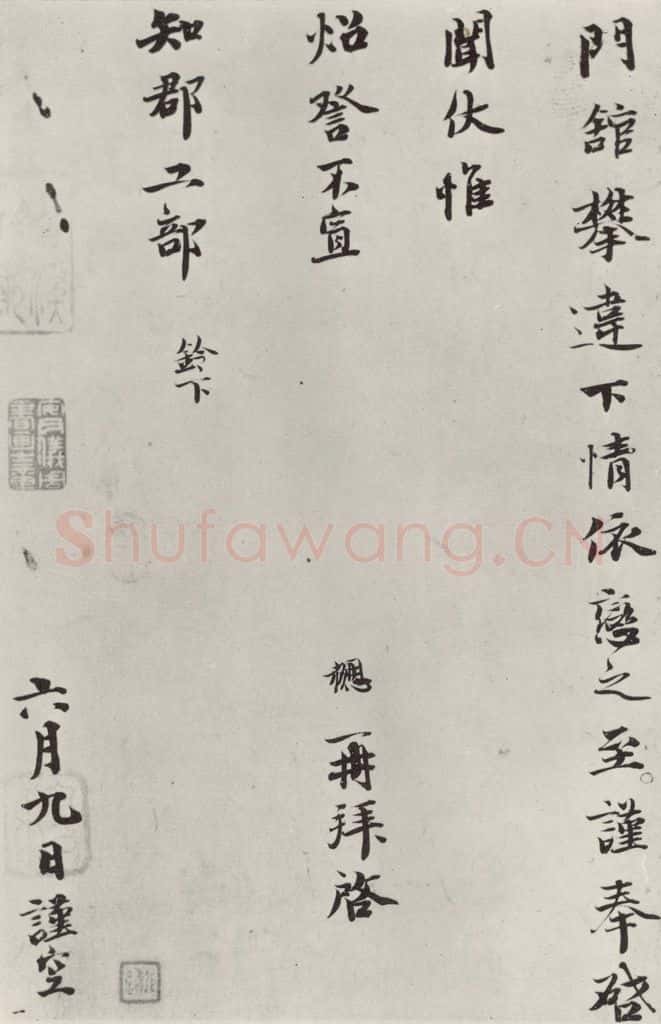 門舘攀違下情依戀之至謹奉啓
聞伏惟
炤詧不宣
再拜啓
知郡工部 鈴下
六月九日謹空
Shufawang.CN